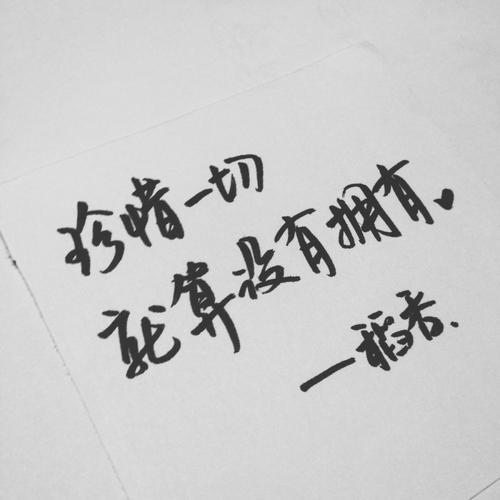 珍惜一切
就算没有拥有♥
—稻香.